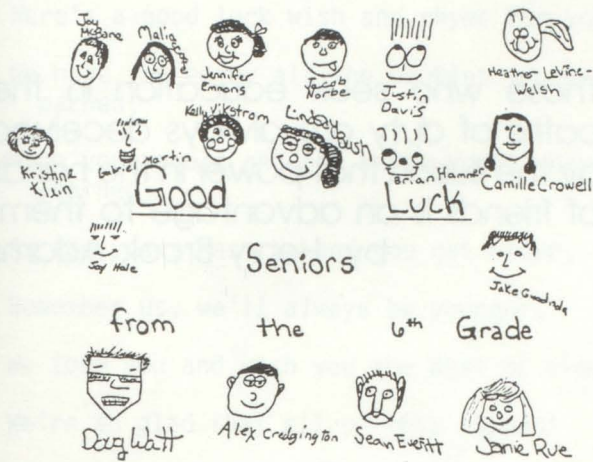 Joy McBane
Malia
Jennifer Emmons
Jacob Thorpe
Justin Davis
Heather Levine-Welsh
Kristine Klain
Martin
Kelly Vikstrom
Lindsay Bush
Brian Hanner
Camille Crowell
Good Luck
Jay Hale
Seniors
Jake
from the 6th Grade
Doug Watt
Alex Credgington
Sean Everitt
Janie Rue